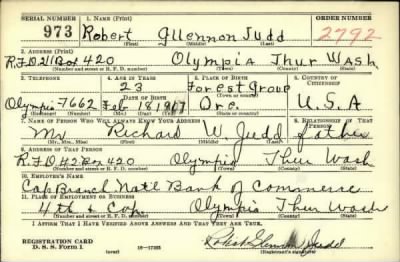 SERIAL NUMBER 1. NAME (Print) ORDER NUMBER
973 Robert Gllennon Judd 2792
(First) (Middle) (Last)
2. ADDRESS (Print)
R.F.D. 2 Box 420 Olympia Thur Wash
(Number and street or R. F. D. number) (Town) (County) (State)
3. TELEPHONE 4. AGE IN YEARS 5. PLACE OF BIRTH 6. COUNTRY OF CITIZENSHIP
23 Forest Group
DATE OF BIRTH
Olympia 7662 Feb 18 1917 Ore. U.S.A
(Exchange) (Number) (Mo.) (Day) (Yr.) (State or country)
7. NAME OF PERSON WHO WILL ALWAYS KNOW YOUR ADDRESS 8. RELATIONSHIP OF THAT PERSON
Mr Richard W. Judd father
(Mr., Mrs., Miss) (First) (Middle) (Last)
9. ADDRESS OF THAT PERSON
R.F.D. #2 Box 420 Olympia Thur Wash
(Number and street or R. F. D. number) (Town) (County) (State)
10. EMPLOYER'S NAME
Cap Branch Nat'l Bank of Commerse
11. PLACE OF EMPLOYMENT OR BUSINESS
4th & Cap. Olympia Thur Wash
(Number and street or R. F. D. number) (Town) (County) (State)
I AFFIRM THAT I HAVE VERIFIED ABOVE ANSWERS AND THAT THEY ARE TRUE.
REGISTRATION CARD
D. S. S. Form 1 (over) 16—17105 Robert Glennon Judd
(Registrant's signature)